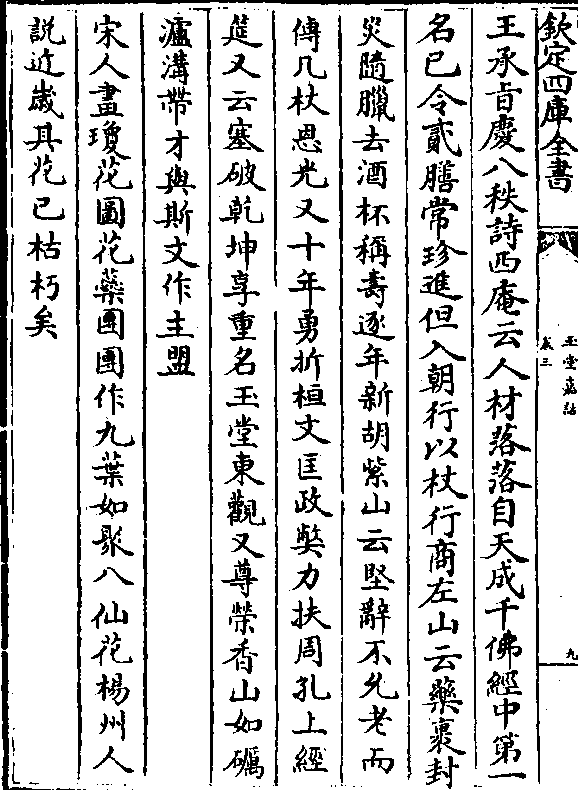 欽定四庫全書
玉堂嘉話
卷三
九
王承旨慶八秩詩西庵云人材落落自天成千佛經中第一
名已令貳膳常珍進但入朝行以杖行商左山云藥裹封
災隨臘去酒杯稱壽逐年新胡紫山云堅辭不允老而
傳几杖恩光又十年勇折桓文匡政獘力扶周孔上經
筵又云塞破乾坤享重名玉堂東觀又尊榮香山如礪
瀘溝帶才與斯文作主盟
宋人畫瓊花圖花藥團團作九葉如聚八仙花楊州人
説近歲其花已枯朽矣